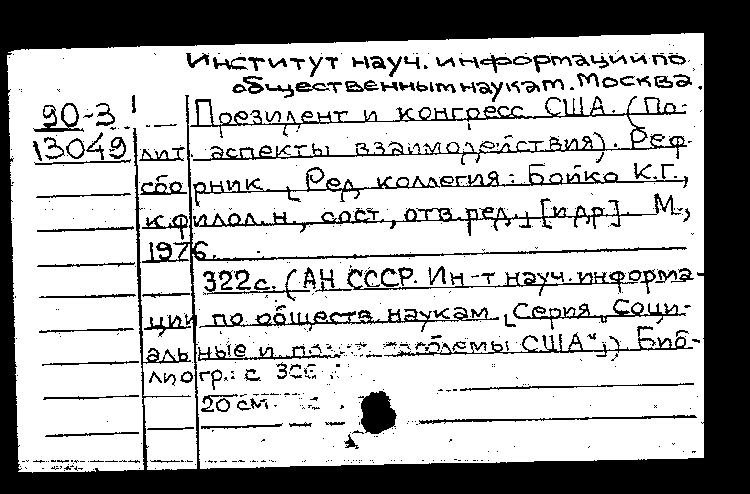 Институт науч. информации по
общественным наукам. Москва.
90-3
13049
Президент и конгресс США. (По-
лит. аспекты взаимодействия). Реф.
сборник. [Ред. коллегия: Бойко К.Г.,
к.филол.н., сост., отв. ред.,] [и др]. М.,
1976.
322 с. (АН СССР. Ин-т науч. информа-
ции по обществ. наукам [Серия „Соци-
альные и проблемы США“]) Биб-
лиогр.: с
20 см.